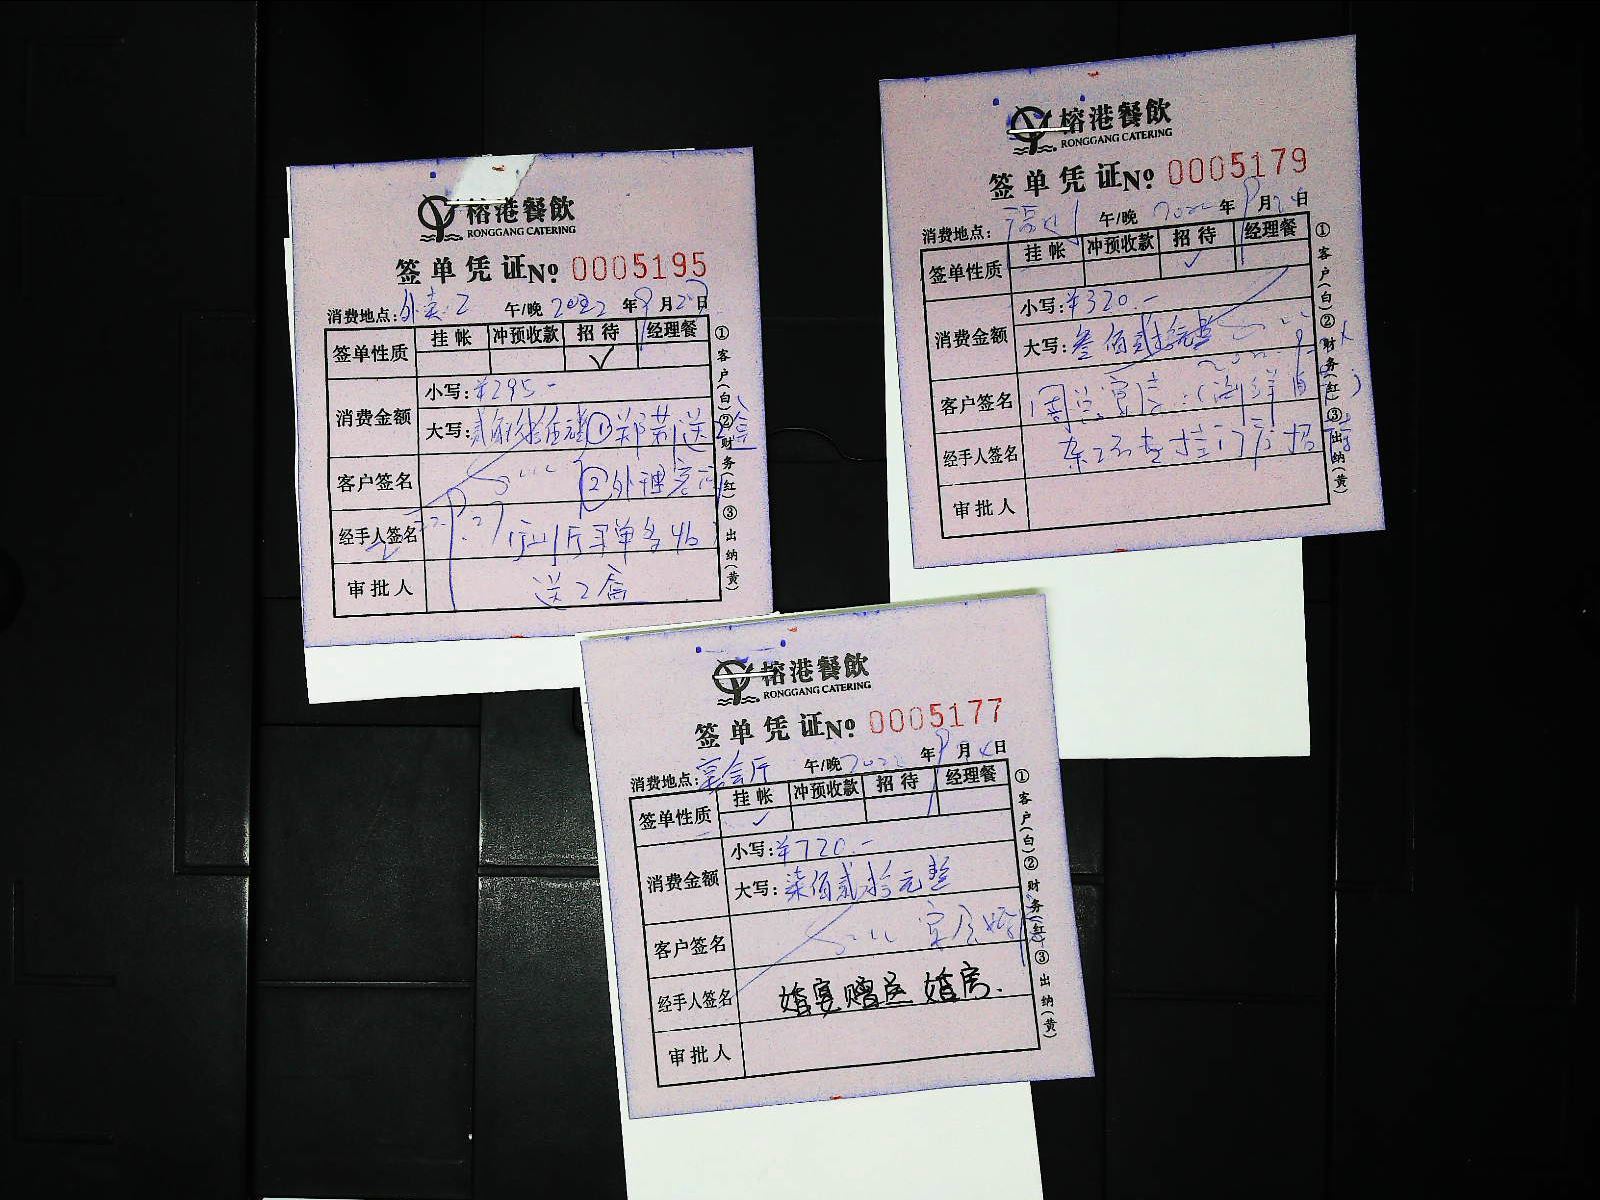 榕港餐飲
RONGGANG CATERING
签单凭证№ 0005195
消费地点: 外卖2 午/晚 2022年9月27日
签单性质 挂帐 冲预收款 招待 经理餐
✓
消费金额
小写:¥295-
大写:贰佰玖拾伍元整 ①郑荊送
客户签名 ②外
经手人签名 厅买单多46
审批人 送2斋
①客户(白)②财务(红)③出纳(黄)
榕港餐飲
RONGGANG CATERING
签单凭证№ 0005179
消费地点: 午/晚 2022年9月24日
签单性质 挂帐 冲预收款 招待 经理餐
✓
消费金额
小写:¥320.-
大写:叁佰贰拾元整
客户签名
经手人签名
审批人
①客户(白)②财务(红)③出纳(黄)
榕港餐飲
RONGGANG CATERING
签单凭证№ 0005177
消费地点:宴会厅 午/晚 2022年9月4日
签单性质 挂帐 冲预收款 招待 经理餐
✓
消费金额
小写:¥720.-
大写:柒佰贰拾元整
客户签名
经手人签名 婚宴赠送婚房.
审批人
①客户(白)②财务(红)③出纳(黄)